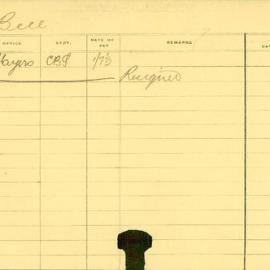 Bell
OFFICE DEPT. RATE OF PAY REMARKS DA
Mayors 175
Resigned